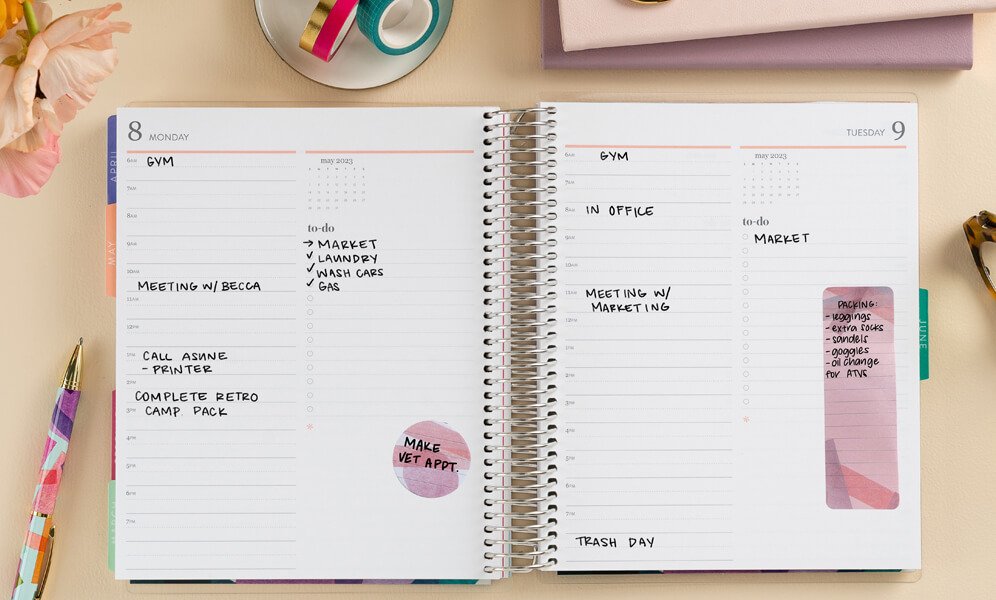 8 MONDAY
6AM GYM
7AM
8AM
9AM
10AM
MEETING W/ BECCA
11AM
12PM
1PM CALL ASUNE
- PRINTER
2PM
COMPLETE RETRO
3PM CAMP PACK
4PM
5PM
6PM
7PM
may 2023
to-do
→ MARKET
✓ LAUNDRY
✓ WASH CARS
✓ GAS
MAKE
VET APPT.
APRIL
MAY
TUESDAY 9
6AM GYM
7AM
8AM IN OFFICE
9AM
10AM
11AM MEETING W/
MARKETING
12PM
1PM
2PM
3PM
4PM
5PM
6PM
7PM
TRASH DAY
may 2023
to-do
MARKET
PACKING:
- leggings
- extra socks
- sandels
- goggles
- oil change
for ATVs
JUNE